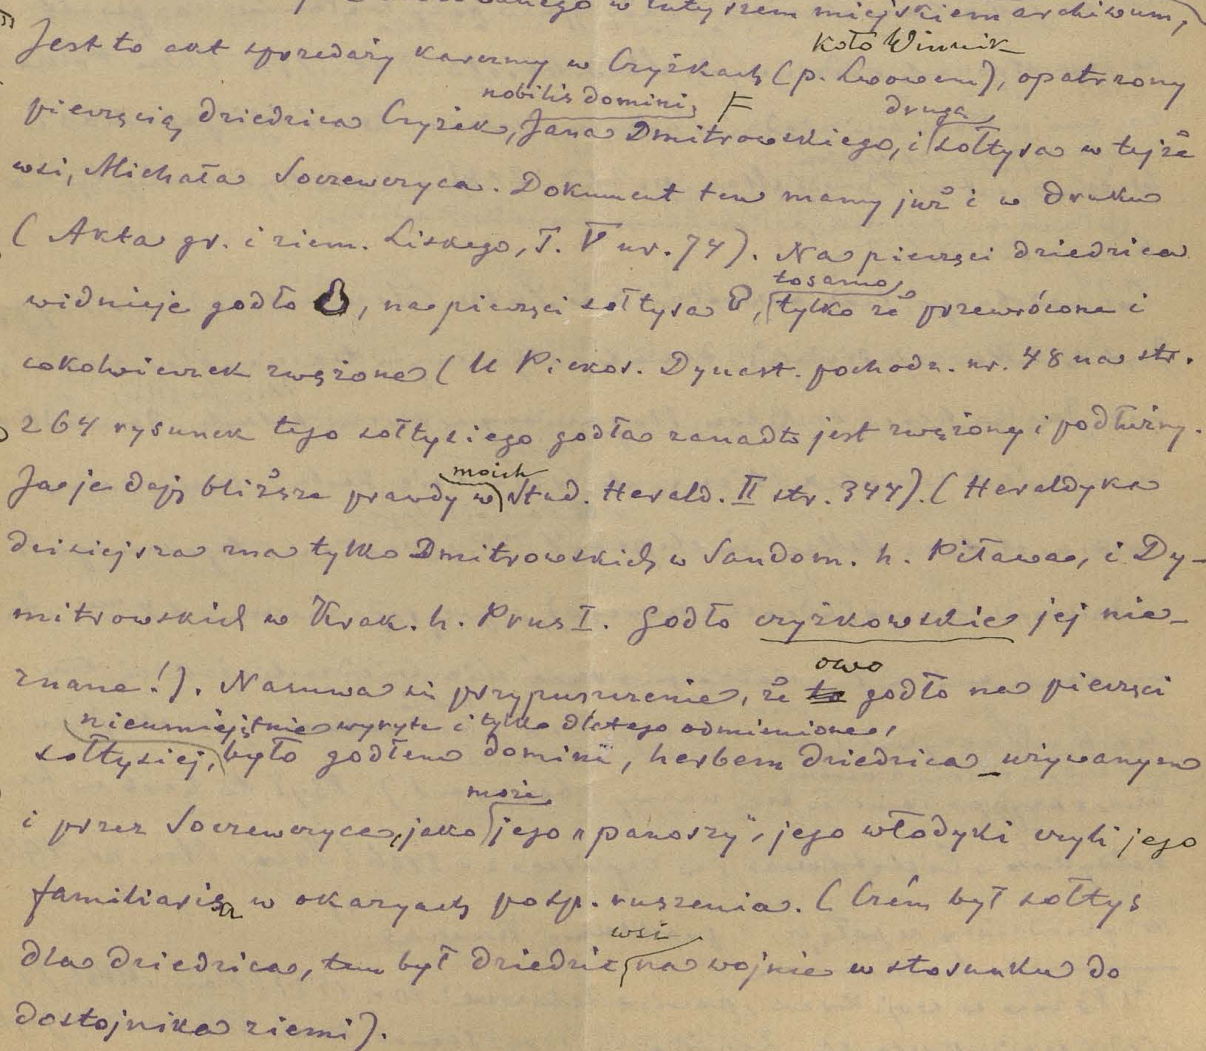 w tutejszem miejskiem archiwum,
Jest to akt sprzedaży karczmy w Czyżkach (p. Lwowem), opatrzony
koło Winnik
pieczęcią dziedzica Czyżek, Jana Dmitrowskiego, i sołtysa w tejże
nobilis domini, F
drugą
wsi, Michała Soczewczyca. Dokument ten mamy już i w druku
(Akta gr. i ziem. Liskego, T. V nr. 74). Na pieczęci dziedzica
widnieje godło , na pieczęci sołtysa , tylko że przewrócone i
to samo
cokolwieczek zwężone (U Piekos. Dynast. pochodz. nr. 48 na str.
264 rysunek tego sołtysiego godła zanadto jest zwężony i podłużny.
Ja je daję bliższe prawdy w Stud. Herald. II str. 344). (Heraldyka
moich
dzisiejsza zna tylko Dmitrowskich w Sandom. h. Piława, i Dy-
mitrowskich w Krak. h. Prus I. Godło czyżkowskie jej nie-
znane!). Nasuwa się przypuszczenie, że to godło na pieczęci
owo
nieumiejętnie wyryte i tylko dlatego odmienione,
sołtysiej, było godłem domini, herbem dziedzica używanym
i przez Soczewczyca, jako jego "panoszy", jego włodyki czyli jego
może
familiarisa w okazyach posp. ruszenia. (Czém był sołtys
dla dziedzica, tem był dziedzic na wojnie w stosunku do
wsi
dostojnika ziemi).